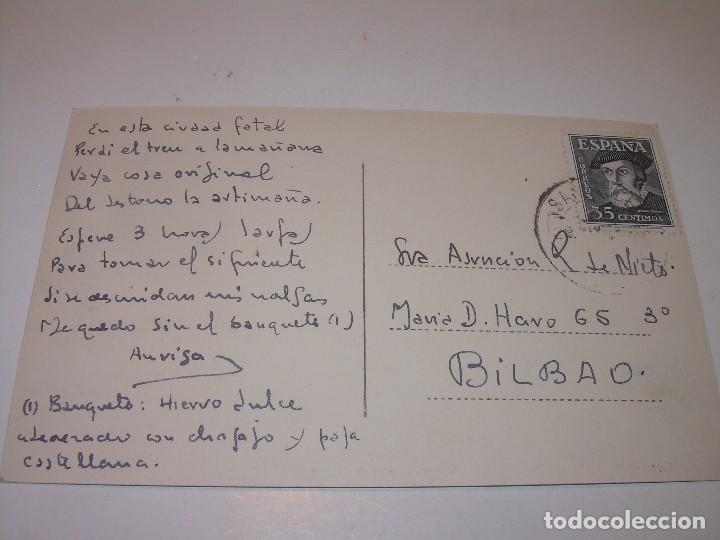 En esta ciudad fatal
Perdi el tren a la mañana
Vaya cosa original
Del la artimaña.
Espere 3 horas largas
Para tomar el siguiente
Si se descuidan mis nalgas
Me quedo sin el banquete (1)
Auriga
(1) Banquete: Hiervo dulce
con y paja
castellana.
ESPAÑA
CORREOS
35 CENTIMOS
Sra Asuncion R. de Nieto.
Maria D. Haro 65 3º
BILBAO.
todocoleccion.net